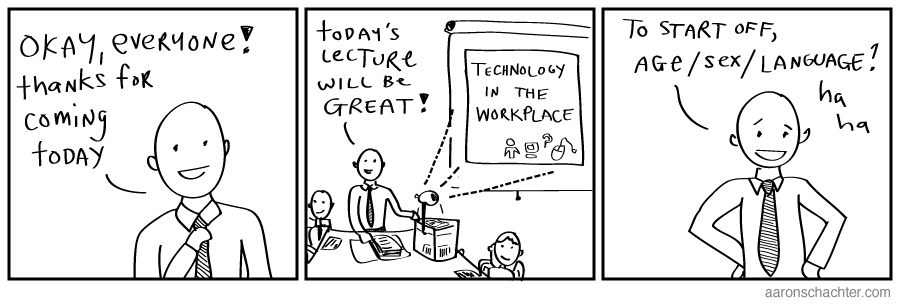 OKAY, EVERYONE!
THANKS FOR
COMING
TODAY
TODAY'S
LECTURE
WILL BE
GREAT!
TECHNOLOGY
IN THE
WORKPLACE
TO START OFF,
AGE/SEX/LANGUAGE?
ha
ha
aaronschachter.com